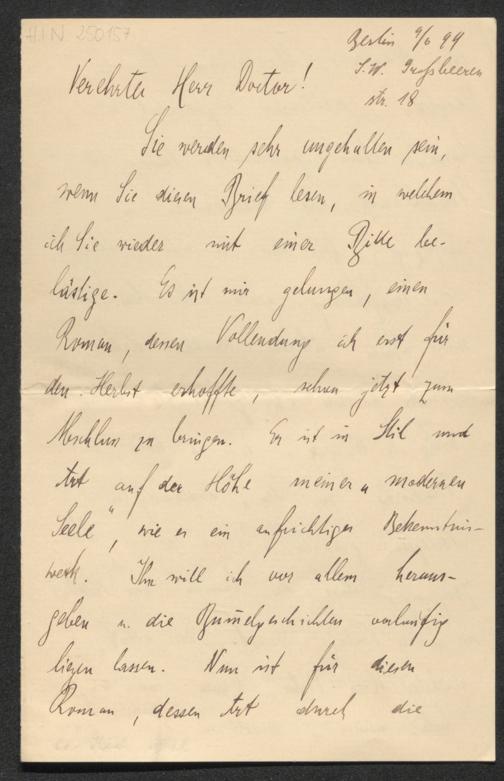 H.I.N. 250157
Berlin 9/6 99
S.W. Großbeeren
str. 18
Verehrter Herr Doctor!
Sie werden sehr ungehalten sein,
wenn Sie diesen Brief lesen, in welchem
ich Sie wieder mit einer Bitte be-
lästige. Es ist mir gelungen, einen
Roman, dessen Vollendung ich erst für
den Herbst erhoffte, schon jetzt zum
Abschluss zu bringen. Er ist in Stil und
Art auf der Höhe meiner „modernen
Seele", wie er ein aufrichtiges Bekenntnis-
werk. Ihn will ich vor allem heraus-
geben u. die Bum̅elgeschichten vorläufig
liegen lassen. Nun ist für diesen
Roman, dessen Art durch die